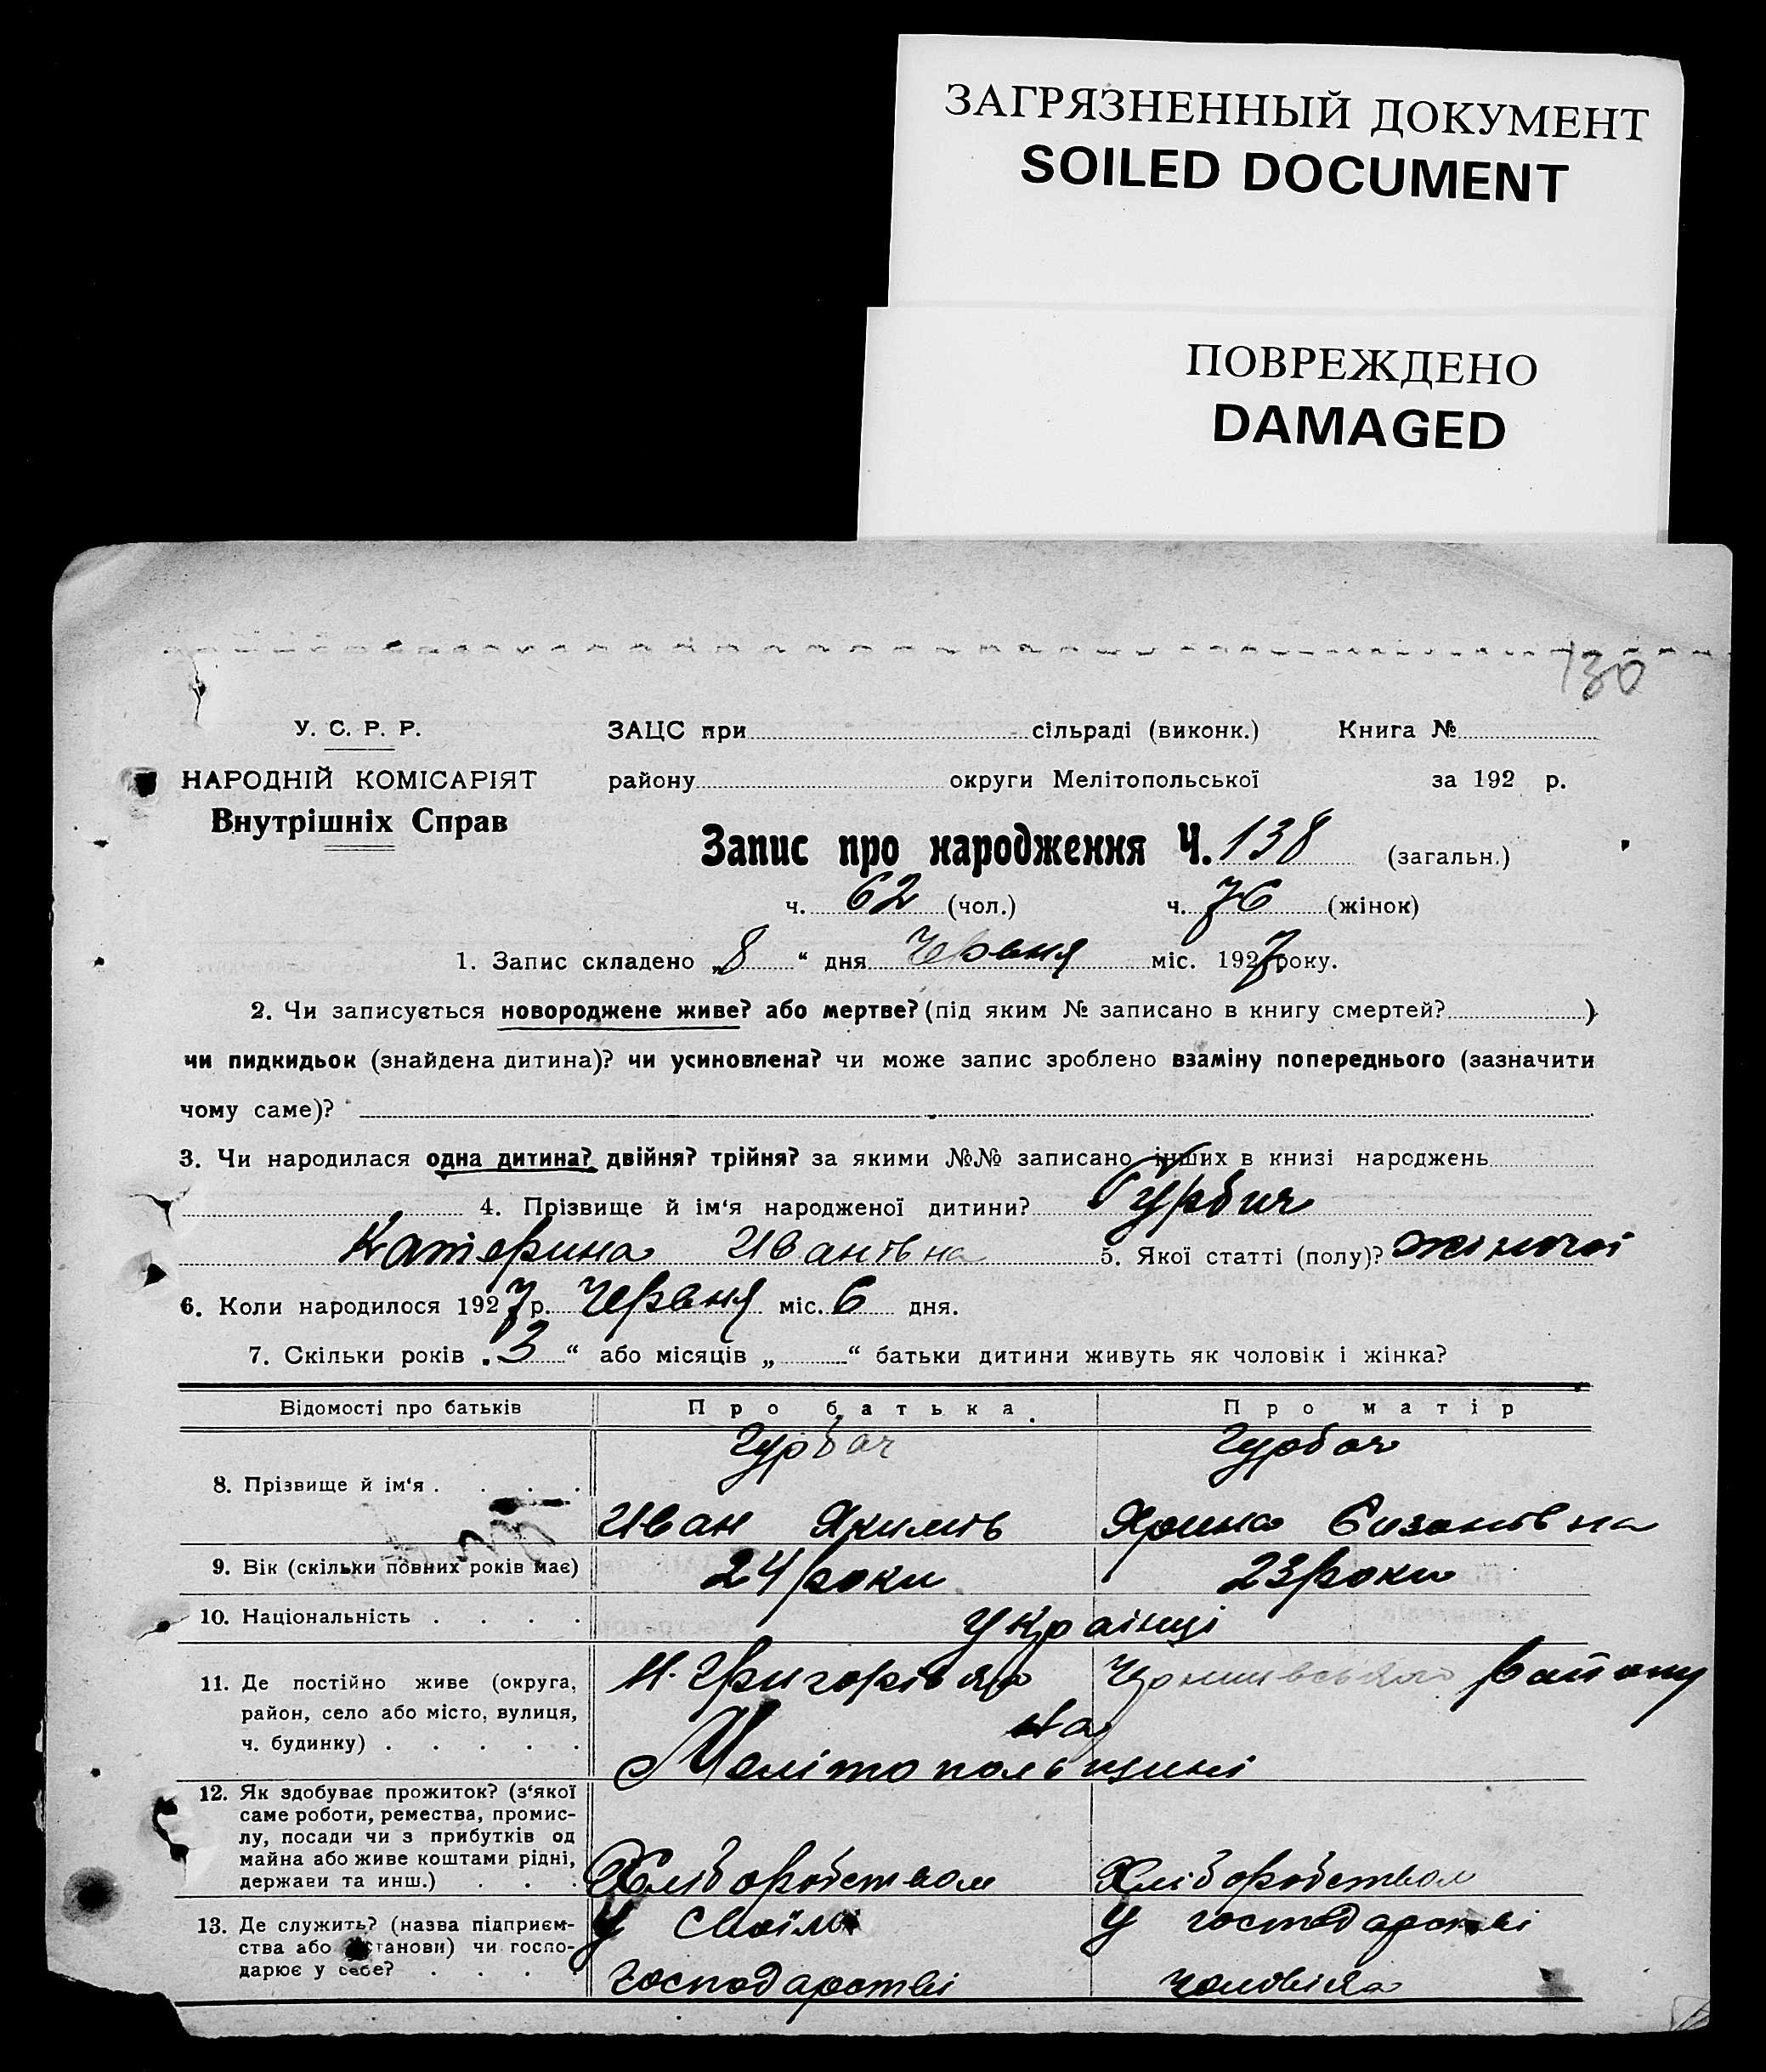 ЗАГРЯЗНЕННЫЙ ДОКУМЕНТ
SOILED DOCUMENT
ПОВРЕЖДЕНО
DAMAGED
130
У. С. Р. Р. ЗАЦС при сільраді (виконк.) Книга №
НАРОДНІЙ КОМІСАРІЯТ району округи Мелітопольської за 192 р.
Внутрішніх Справ
Запис про народження Ч. 138 (загальн.)
ч. 62 (чол.) ч. 76 (жінок)
1. Запис складено „8“ дня Червня міс. 1927 року.
2. Чи записується новороджене живе? або мертве? (під яким № записано в книгу смертей? )
чи пидкидьок (знайдена дитина)? чи усиновлена? чи може запис зроблено взаміну попереднього (зазначити
чому саме)?
3. Чи народилася одна дитина? двійня? трійня? за якими №№ записано інших в книзі народжень
4. Прізвище й ім‘я народженої дитини?
Катерина Иванівна 5. Якої статті (полу)? жіночоі
6. Коли народилося 1927 р. Червня міс. 6 дня.
7. Скільки років „3“ або місяців „ “ батьки дитини живуть як чоловік і жінка?
Відомості про батьків Про батька Про матір
Гурбач Гурбач
8. Прізвище й ім‘я
Иван Якимів Ярина
9. Вік (скільки повних років має) 24 роки 23 роки
10. Національність Українці
11. Де постійно живе (округа, району
район, село або місто, вулиця, на
ч. будинку) Мелітопольщині
12. Як здобуває прожиток? (з‘якої
саме роботи, ремества, промис-
лу, посади чи з прибутків од
майна або живе коштами рідні,
держави та инш.) Хліборобством Хліборобством
13. Де служить? (назва підприєм- У своїм У господарстві
ства або установи) чи госпо-
дарює у себе? господарстві чоловіка